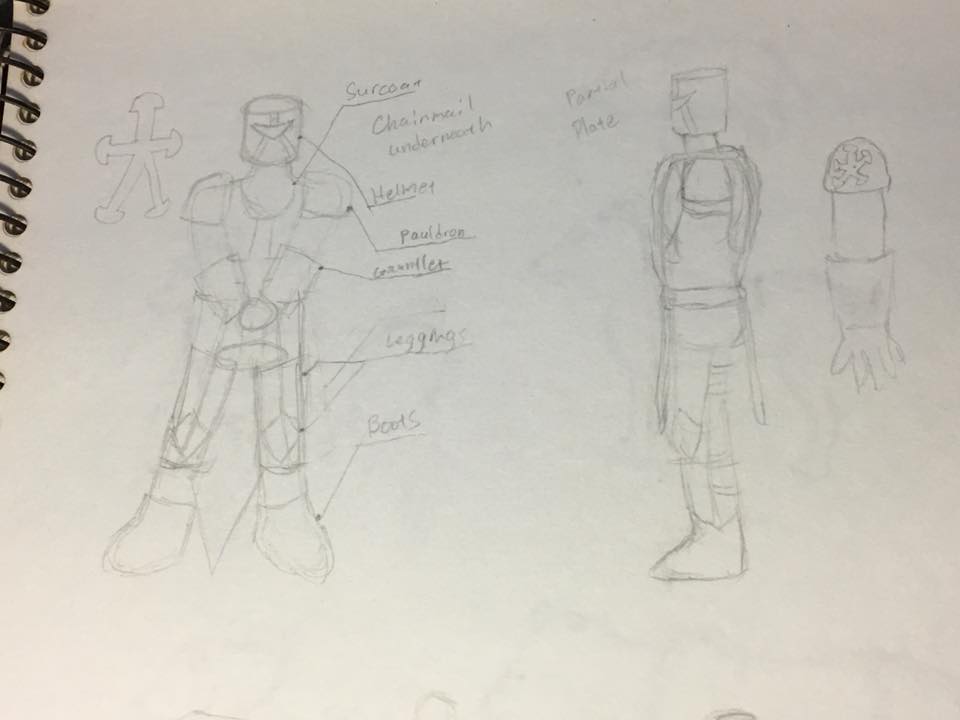 Surcoat
Chainmail
underneath
Helmet
Pauldron
Gauntlet
Leggings
Boots
Partial
Plate